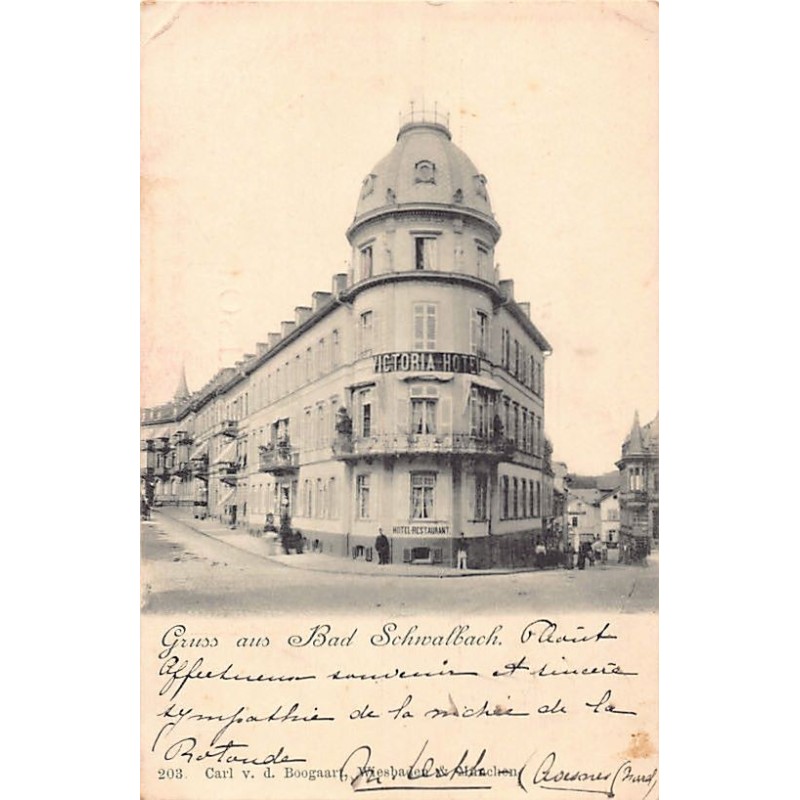 VICTORIA HOTEL
HOTEL-RESTAURANT
Gruss aus Bad Schwalbach. 6 Août
Affectueux souvenir et sincère
sympathie de la nichée de la
Rotonde
203. Carl v. d. Boogaart, Wiesbaden & München.
Avesnes (Nord)